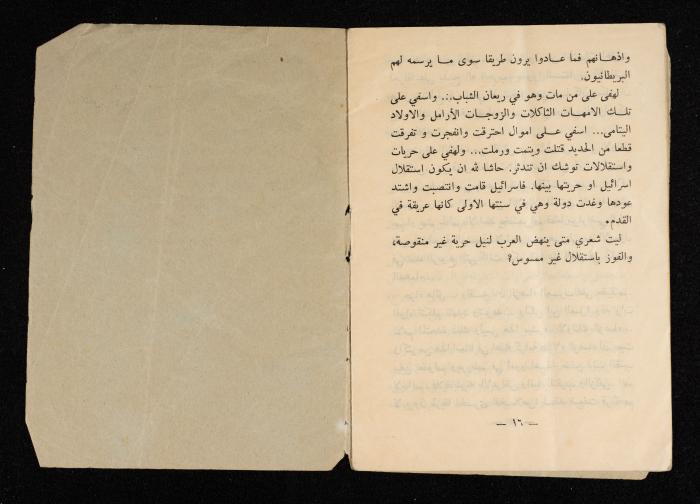 واذهانهم فما عادوا يرون طريقا سوى ما يرسمه لهم
البريطانيون.
لهفى على من مات وهو في ريعان الشباب.:. واسفي على
تلك الامهات الثاكلات والزوجات الأرامل والاولاد
اليتامى... اسفي على اموال احترقت وانفجرت و تفرقت
قطعا من الحديد قتلت ويتمت ورملت... ولهفي على حريات
واستقلالات توشك ان تندثر. حاشا لله ان يكون استقلال
اسرائيل او حريتها بينها. فاسرائيل قامت وانتصبت واشتد
عودها وغدت دولة وهي في سنتها الاولى كانها عريقة في
القدم.
ليت شعري متى ينهض العرب لنيل حرية غير منقوصة،
والفوز باستقلال غير ممسوس؟
— ١٦ —